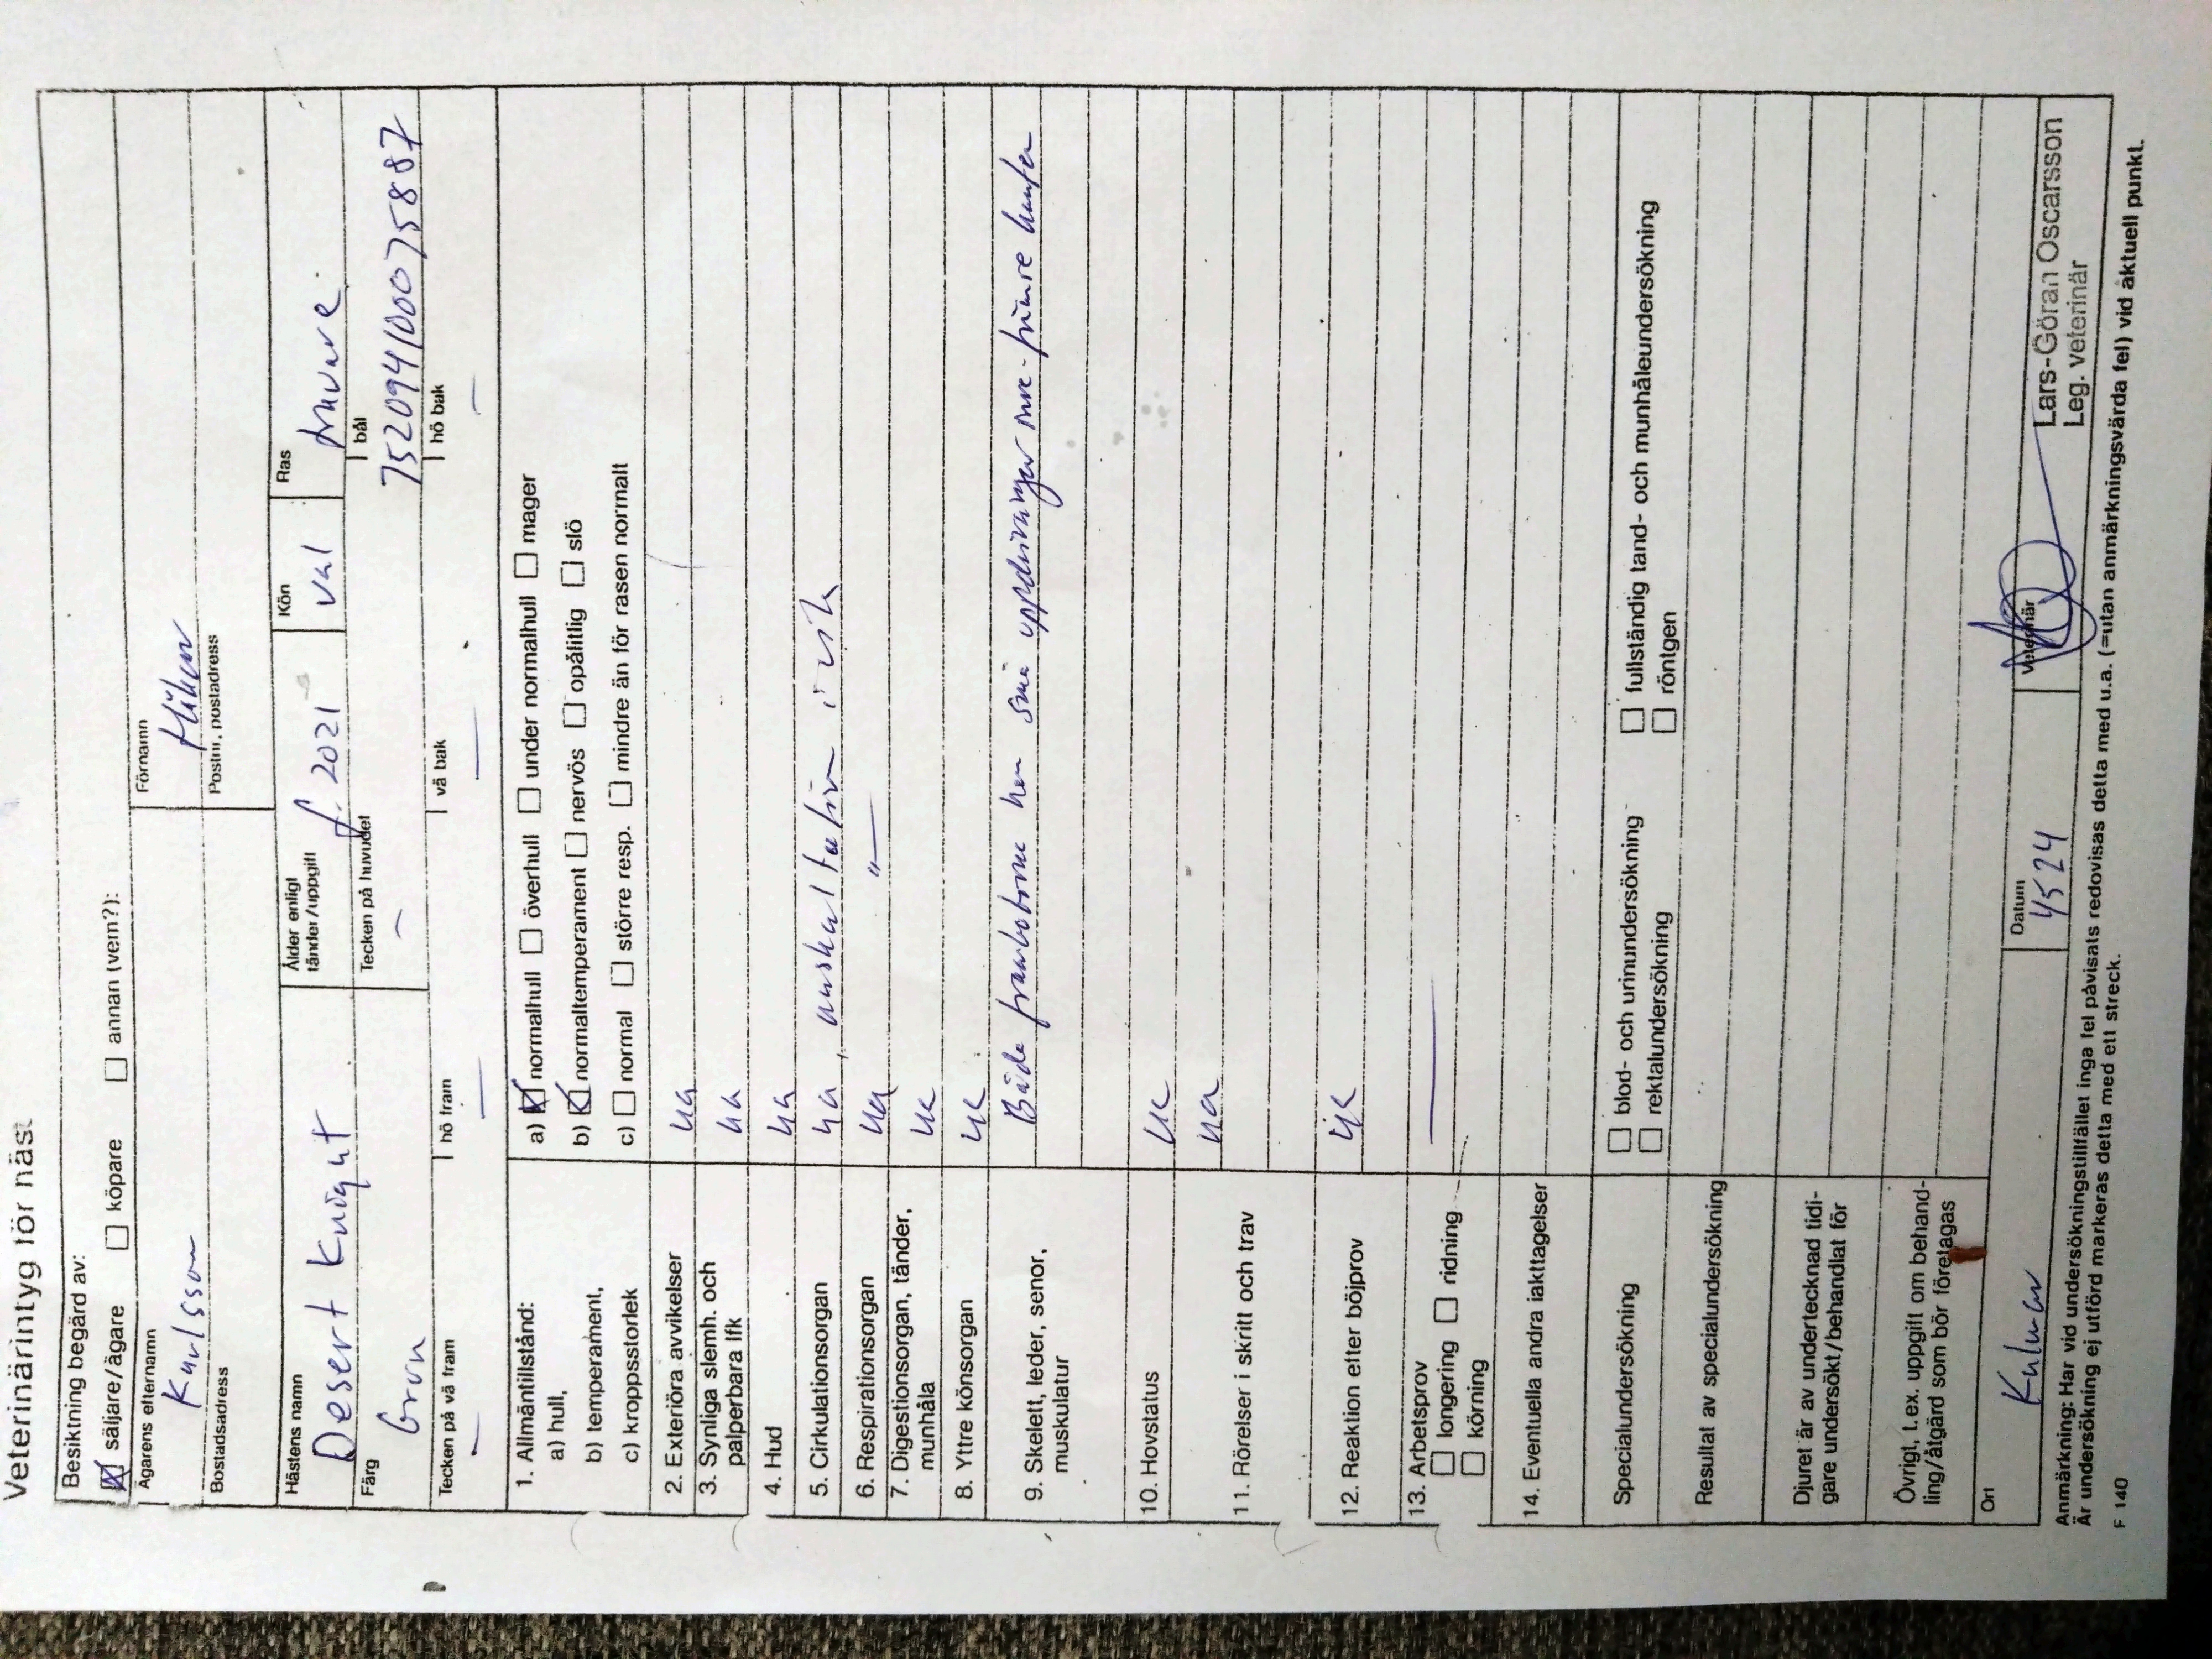 Veterinärintyg för häst
Besiktning begärd av:
☒ säljare/ägare ☐ köpare ☐ annan (vem?):
Ägarens efternamn Förnamn
Karlsson Håkan
Bostadsadress Postnr, postadress
Hästens namn Ålder enligt tänder/uppgift Kön Ras
Desert Knight f. 2021 val
Färg Tecken på huvudet bål
brun – 752094100075887
Tecken på vä fram hö fram vä bak hö bak
– – – –
1. Allmäntillstånd:
a) hull, a) ☒ normalhull ☐ överhull ☐ under normalhull ☐ mager
b) temperament, b) ☒ normaltemperament ☐ nervös ☐ opålitlig ☐ slö
c) kroppsstorlek c) ☐ normal ☐ större resp. ☐ mindre än för rasen normalt
2. Exteriöra avvikelser ua
3. Synliga slemh. och ua
palperbara lfk
4. Hud ua
5. Cirkulationsorgan ua, auskultation i vila
6. Respirationsorgan ua –"–
7. Digestionsorgan, tänder, ua
munhåla
8. Yttre könsorgan ua
9. Skelett, leder, senor, Både frambenen har små uppdrivningar
muskulatur
10. Hovstatus ua
11. Rörelser i skritt och trav ua
12. Reaktion efter böjprov ua
13. Arbetsprov –
☐ longering ☐ ridning
☐ körning
14. Eventuella andra iakttagelser
Specialundersökning ☐ blod- och urinundersökning ☐ fullständig tand- och munhåleundersökning
☐ rektalundersökning ☐ röntgen
Resultat av specialundersökning
Djuret är av undertecknad tidi-
gare undersökt/behandlat för
Övrigt, t.ex. uppgift om behand-
ling/åtgärd som bör företagas
Ort Datum Veterinär
Kalmar 4524 Lars-Göran Oscarsson
Leg. veterinär
Anmärkning: Har vid undersökningstillfället inga fel påvisats redovisas detta med u.a. (=utan anmärkningsvärda fel) vid aktuell punkt.
Är undersökning ej utförd markeras detta med ett streck.
F 140